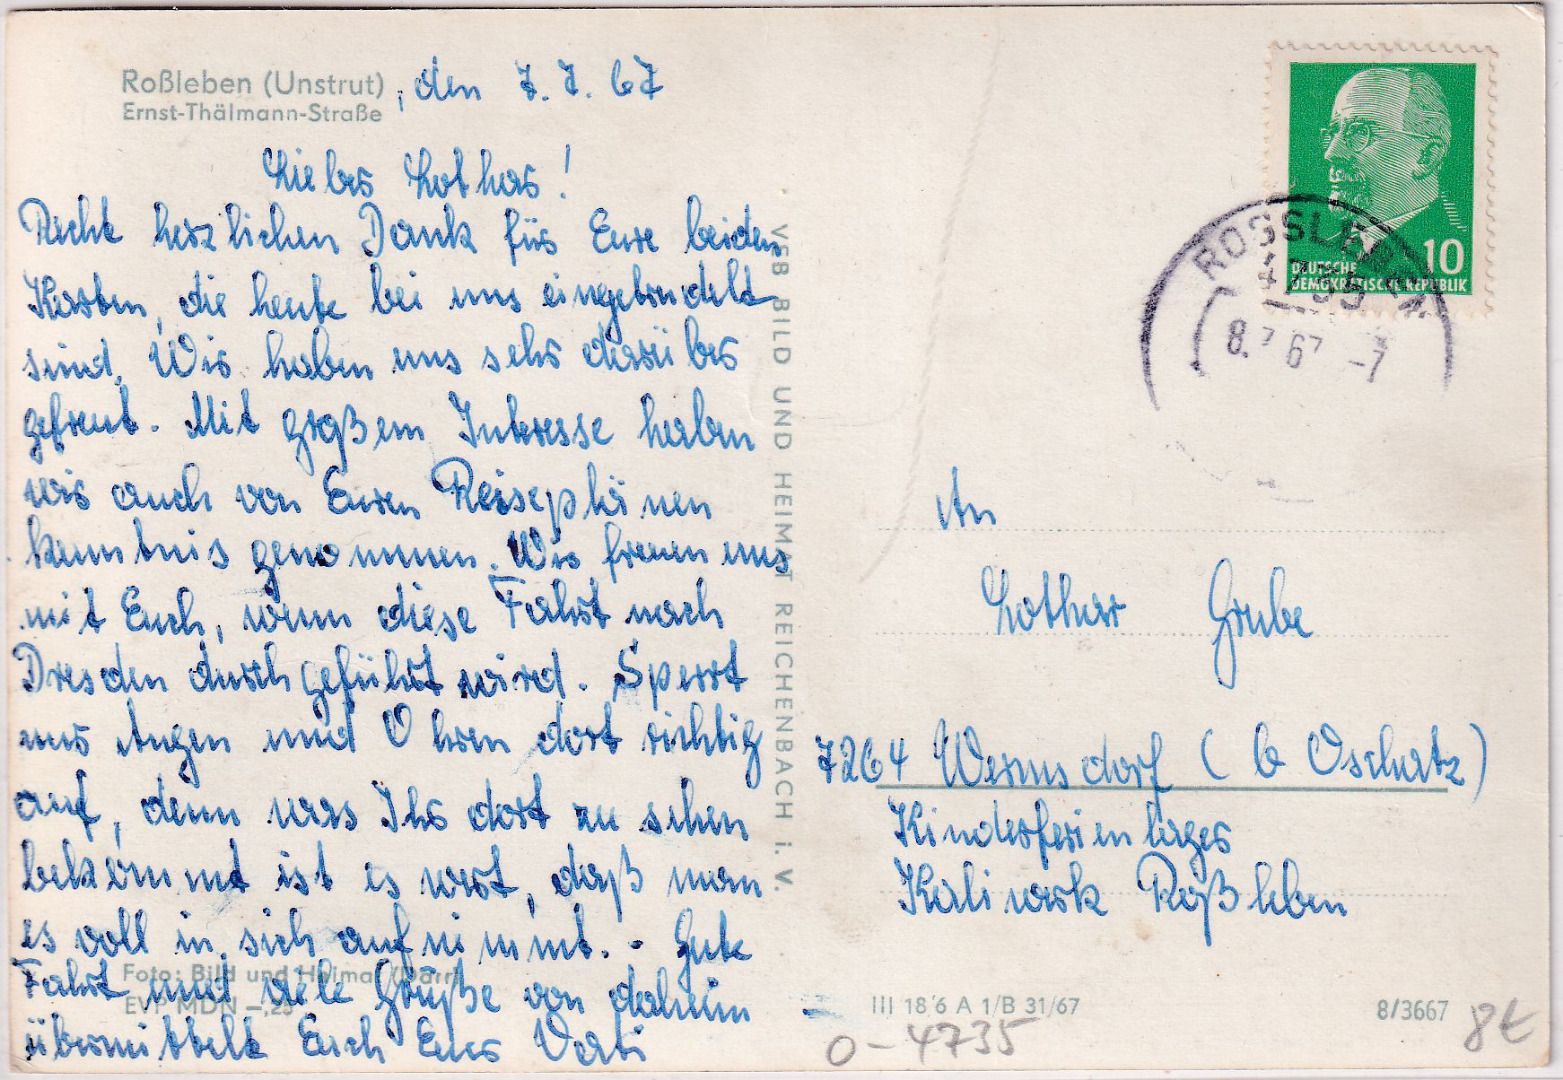 Roßleben (Unstrut), den 7.7.67
Ernst-Thälmann-Straße
Lieber Lothar!
Recht herzlichen Dank für Eure beiden
Karten, die heute bei uns eingetrudelt
sind. Wir haben uns sehr darüber
gefreut. Mit großem Interesse haben
wir auch von Euren Reiseplänen
kenntnis genommen. Wir freuen uns
mit Euch, wenn diese Fahrt nach
Dresden durchgeführt wird. Sperrt
nur Augen und Ohren dort richtig
auf, denn was Ihr dort zu sehen
bekommt ist es wert, daß man
es voll in sich aufnimmt. - Gute
Fahrt und viele Grüße von daheim
übermittelt Euch Euer Vati
Foto: Bild und Heimat (Darr)
EVP MDN -,25
VEB BILD UND HEIMAT REICHENBACH i. V.
10
DEUTSCHE
DEMOKRATISCHE REPUBLIK
ROSSLEBEN
4735
8.7.67 -7
An
Lothar Grube
7264 Wermsdorf (b Oschatz)
Kinderferienlager
Kaliwerk Roßleben
III 18 6 A 1/B 31/67
8/3667
O-4735